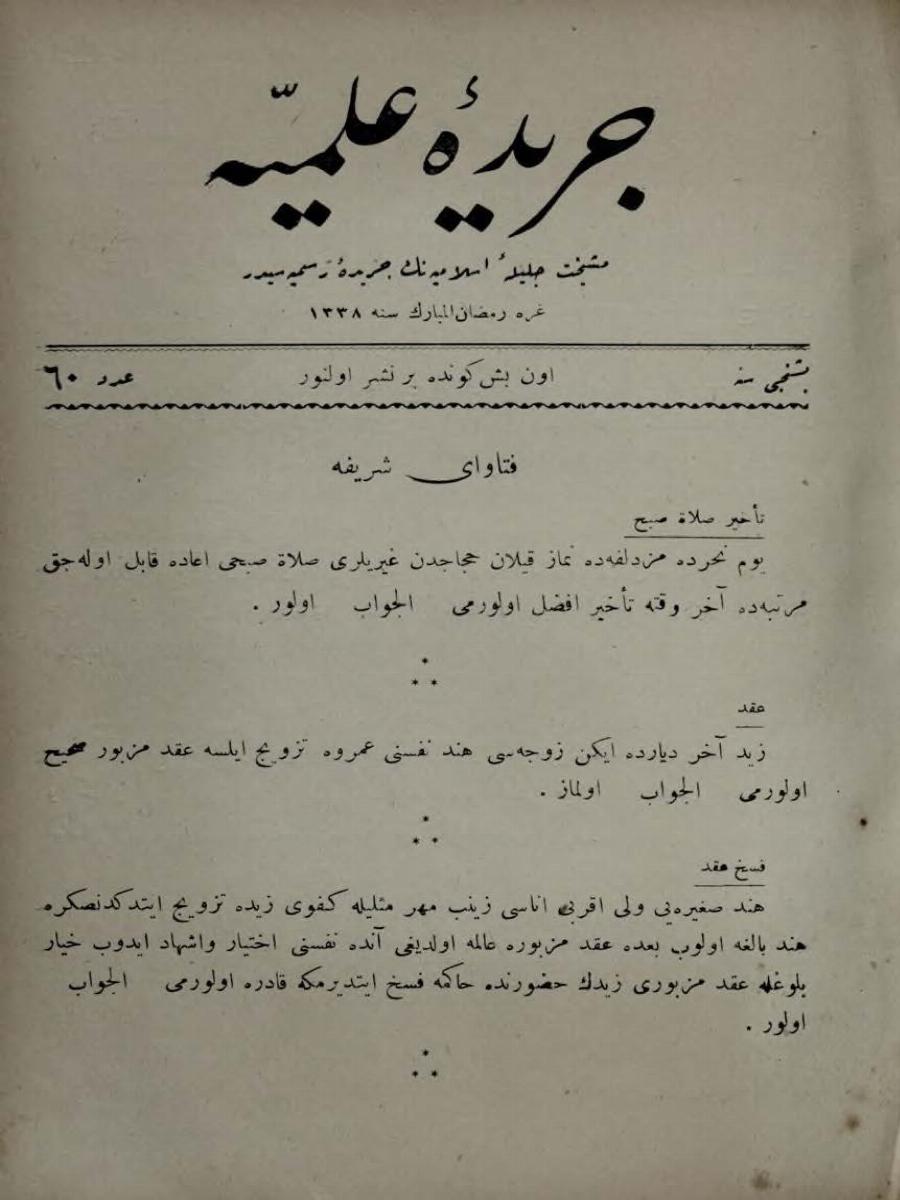 جريدۀ علميّه
مشيخت جليلۀ اسلاميه نك جريدۀ رسميه سيدر
غره رمضان المبارك سنه ١٣٣٨
بشنجى سنه
اون بش كونده بر نشر اولنور
عدد ٦٠
فتاواى شريفه
تأخير صلاة صبح
يوم نحرده مزدلفه‌ده نماز قيلان حجاجدن غيريلرى صلاة صبحى اعاده قابل اوله‌جق
مرتبه‌ده آخر وقته تأخير افضل اولورمى الجواب اولور .
*
* *
عقد
زيد آخر ديارده ايكن زوجه‌سى هند نفسنى عمروه تزويج ايلسه عقد مزبور صحيح
اولورمى الجواب اولماز .
*
* *
فسخ عقد
هند صغيره‌يى ولى اقربى اناسى زينب مهر مثليله كفوى زيده تزويج ايتدكدنصكره
هند بالغه اولوب بعده عقد مزبوره عالمه اولديغى آنده نفسنى اختيار واشهاد ايدوب خيار
بلوغله عقد مزبورى زيدك حضورنده حاكمه فسخ ايتديرمكه قادره اولورمى الجواب
اولور .
*
* *